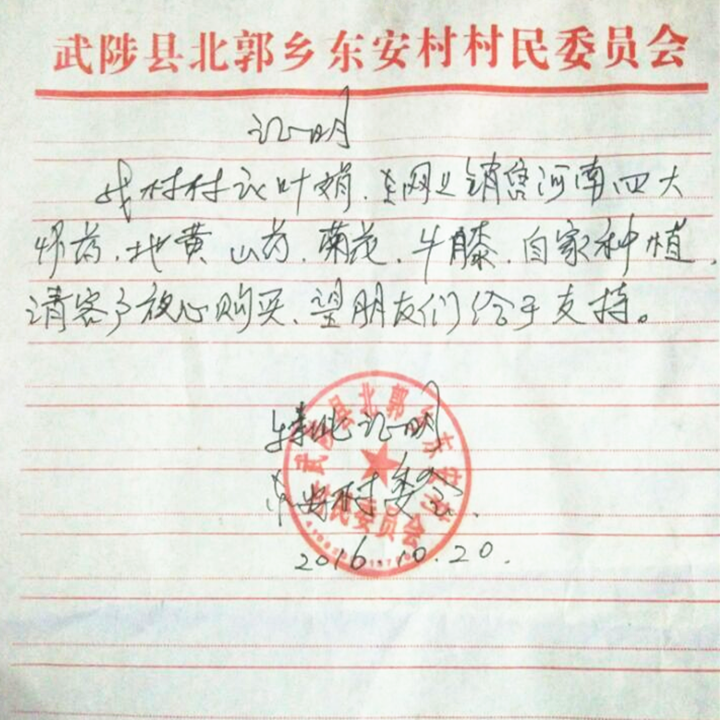 武陟县北郭乡东安村村民委员会
证明
我村村议叶娟.在网上销售河南四大
怀药.地黄山药.菊花.牛膝.自家种植.
请客户放心购买、望朋友们给予支持。
特此证明
东安村委会.
2016.10.20.
武陟县北郭乡东安村
村民委员会